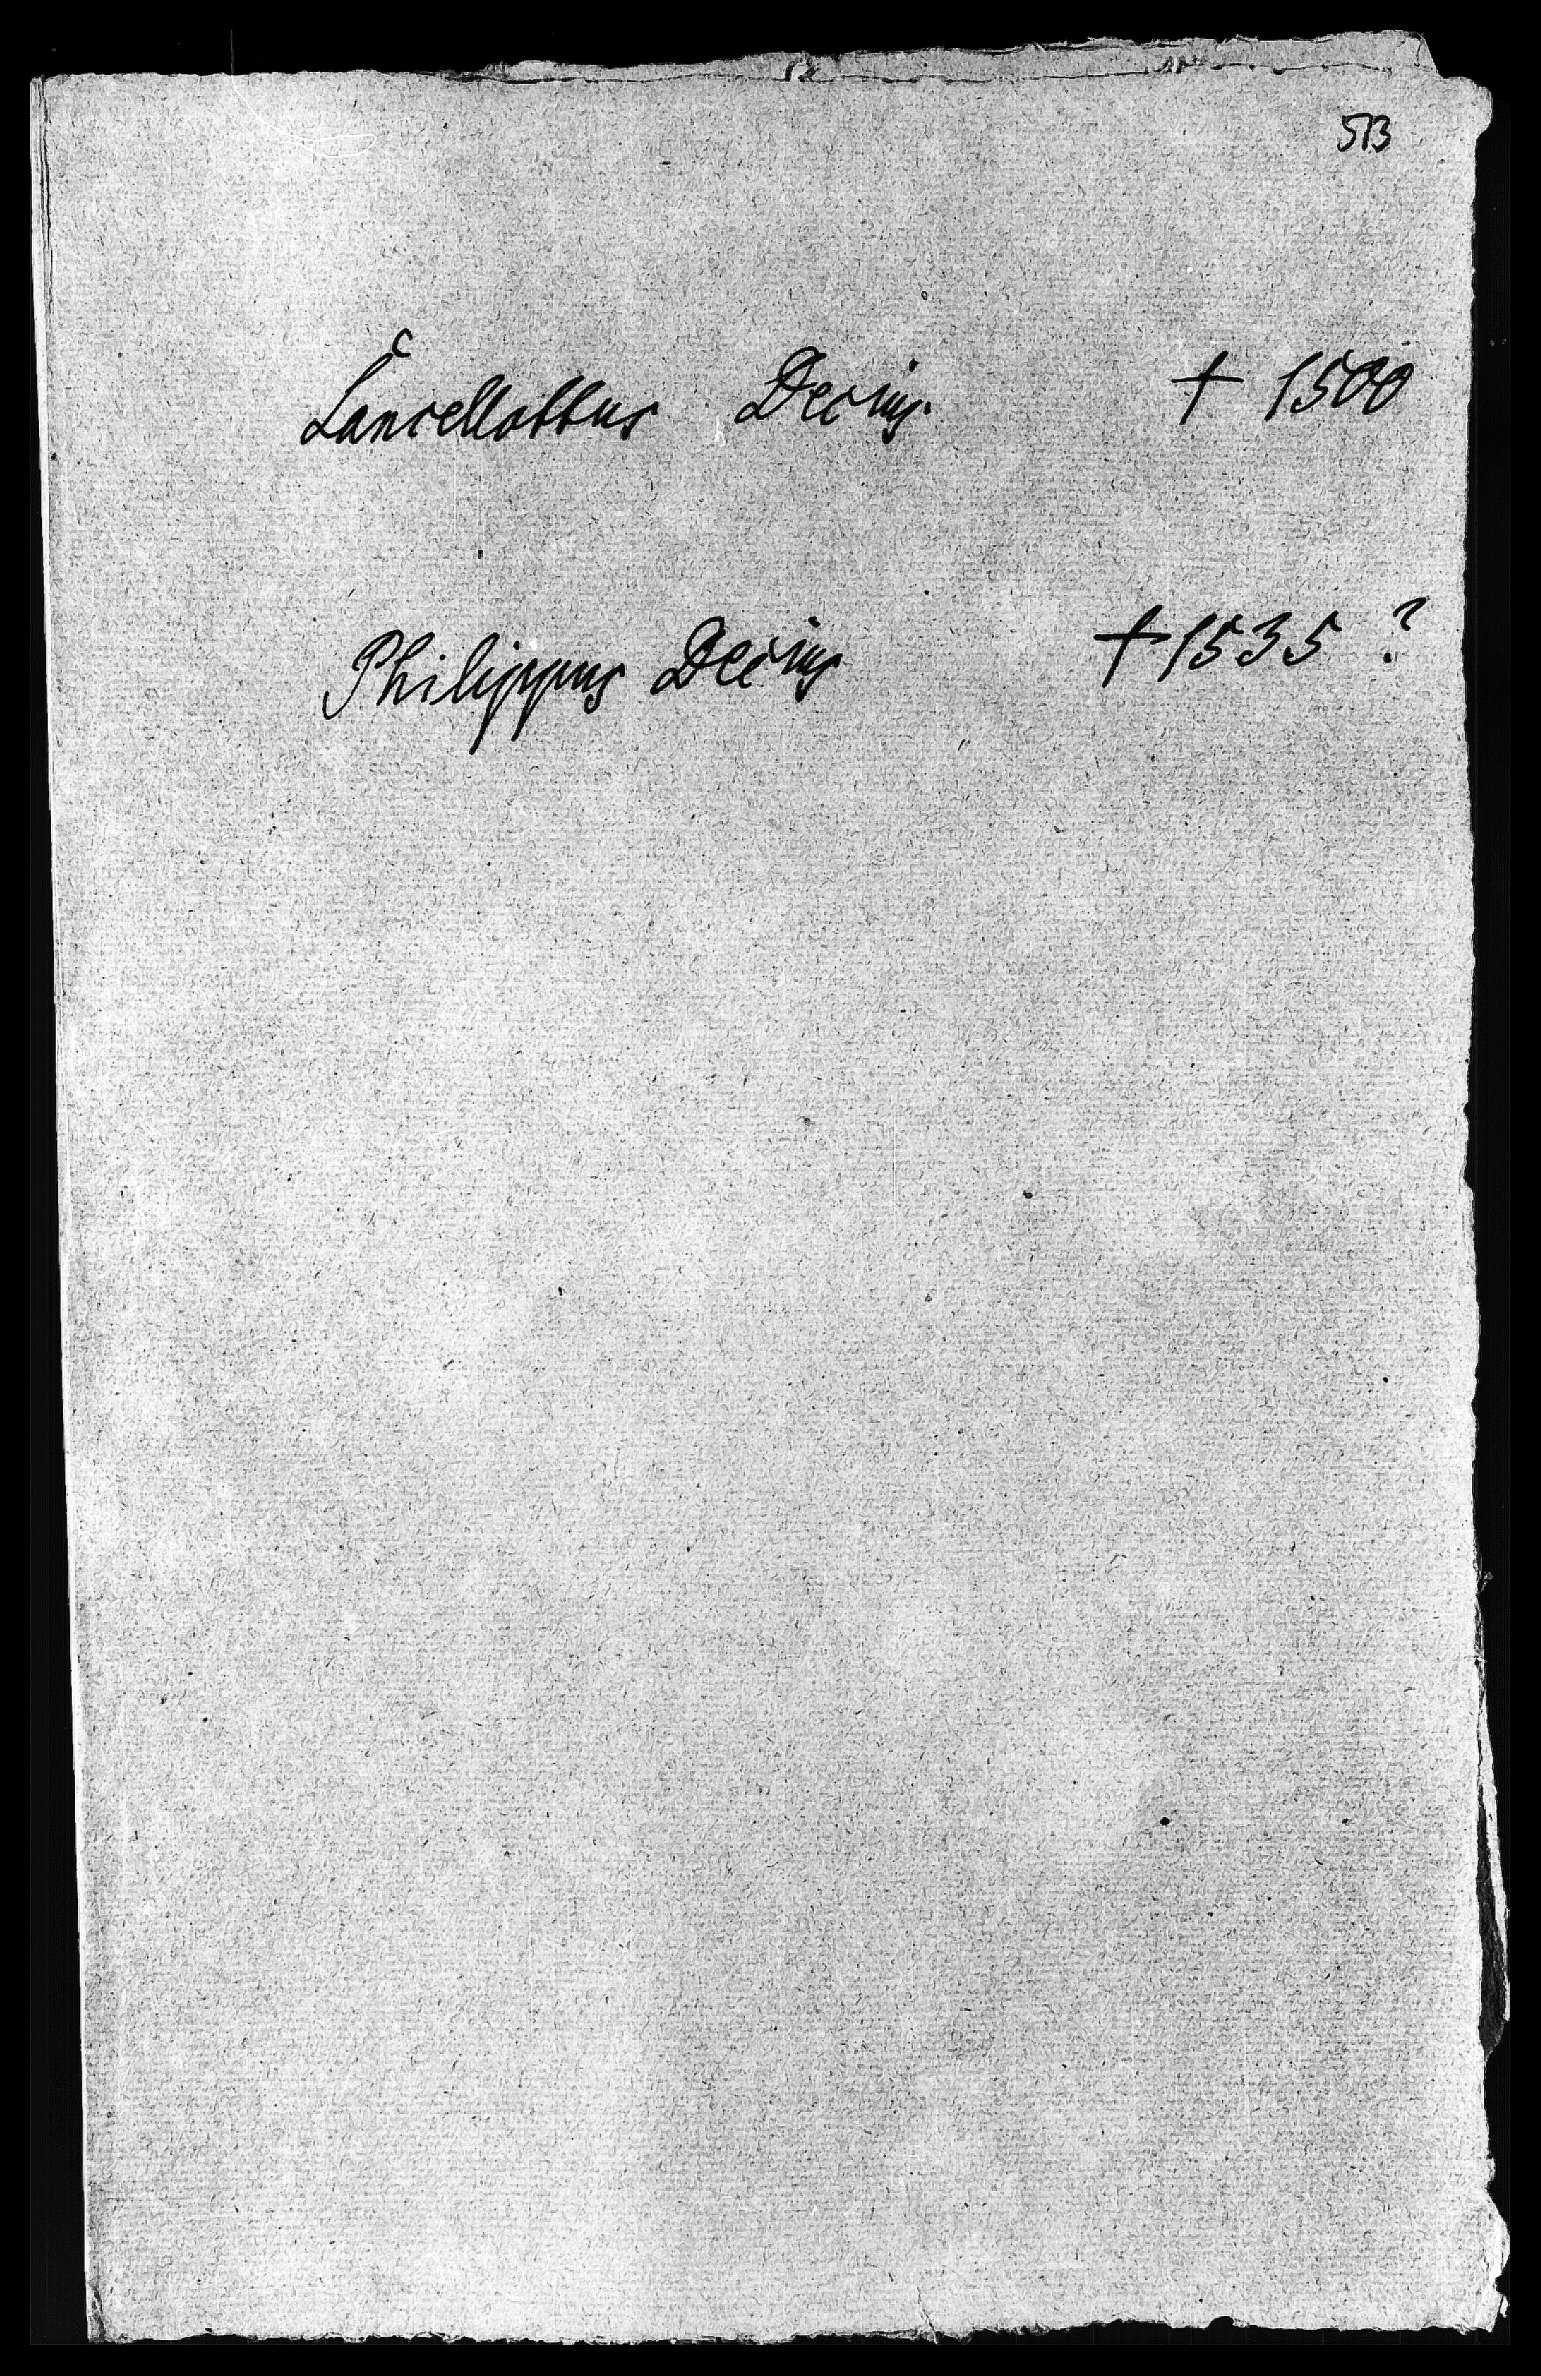 513
Lancellottus Decius + 1500
Philippus Decius + 1535 ?